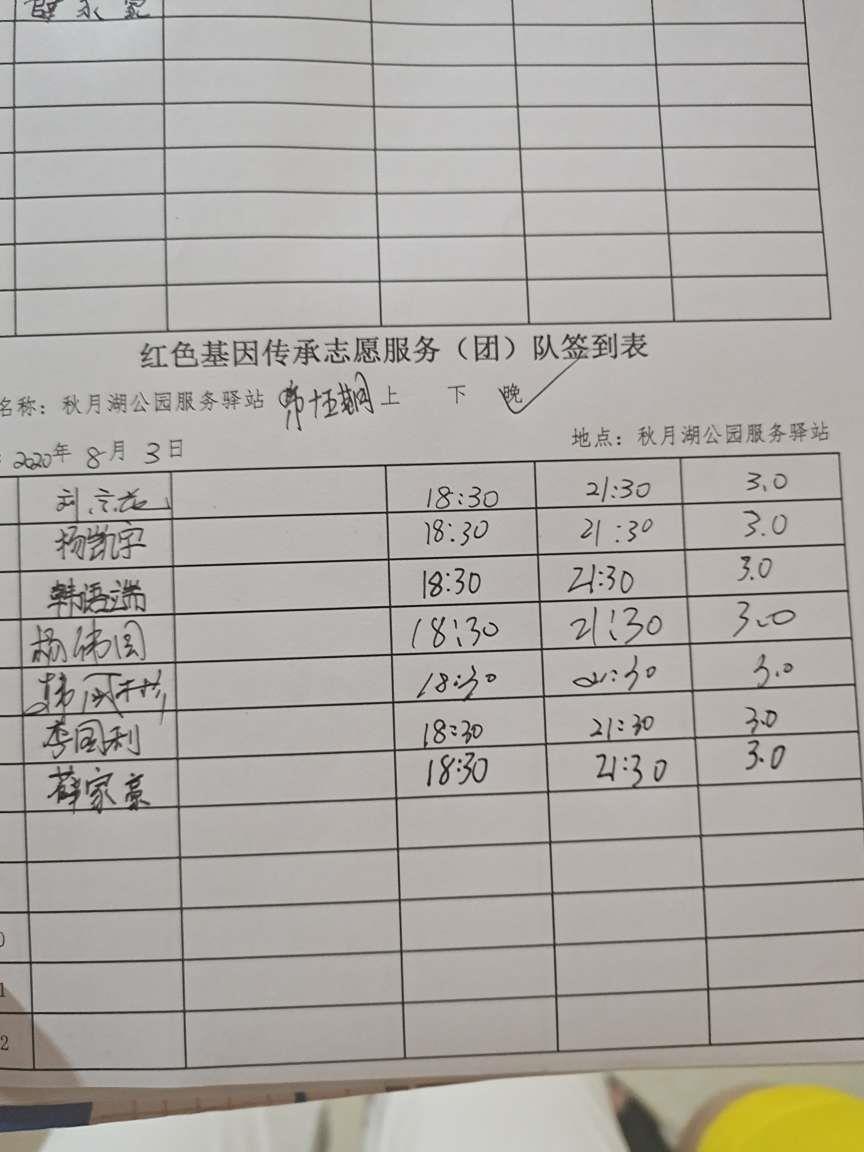 薛家豪
红色基因传承志愿服务（团）队签到表
名称：秋月湖公园服务驿站 第十五期 上 下 晚
：2020年 8月 3日 地点：秋月湖公园服务驿站
刘 18:30 21:30 3.0
杨凯宇 18:30 21:30 3.0
韩语端 18:30 21:30 3.0
杨伟国 18:30 21:30 3.0
韩 18:30 21:30 3.0
李国利 18:30 21:30 3.0
薛家豪 18:30 21:30 3.0
0
1
2